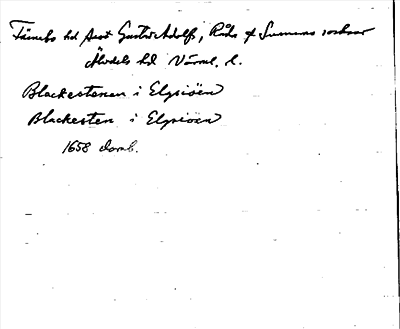 Färnebo hd samt Gustav Adolfs, Råda & Sunnemo socknar
Älvdals hd Värml. l.
Blackestenen i Elgsiöen
Blackesten i Elgsiöen
1658 domb.